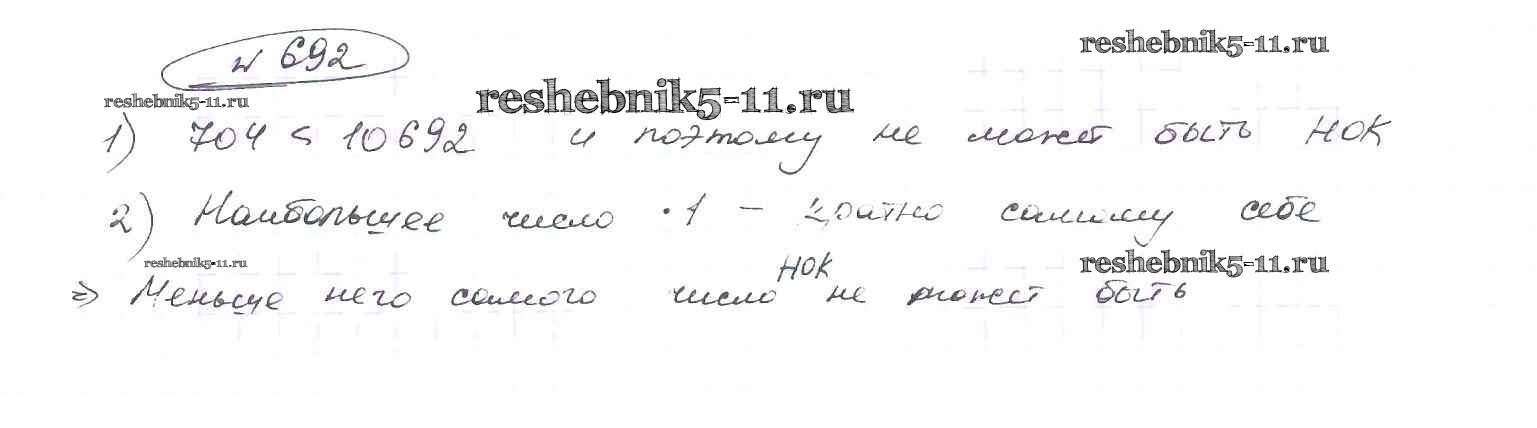 № 692
reshebnik5-11.ru
reshebnik5-11.ru
reshebnik5-11.ru
1) 704 < 10692 и поэтому не может быть НОК
2) Наибольшее число · 1 – кратно самому себе
reshebnik5-11.ru
reshebnik5-11.ru
НОК
=> Меньше него самого число не может быть